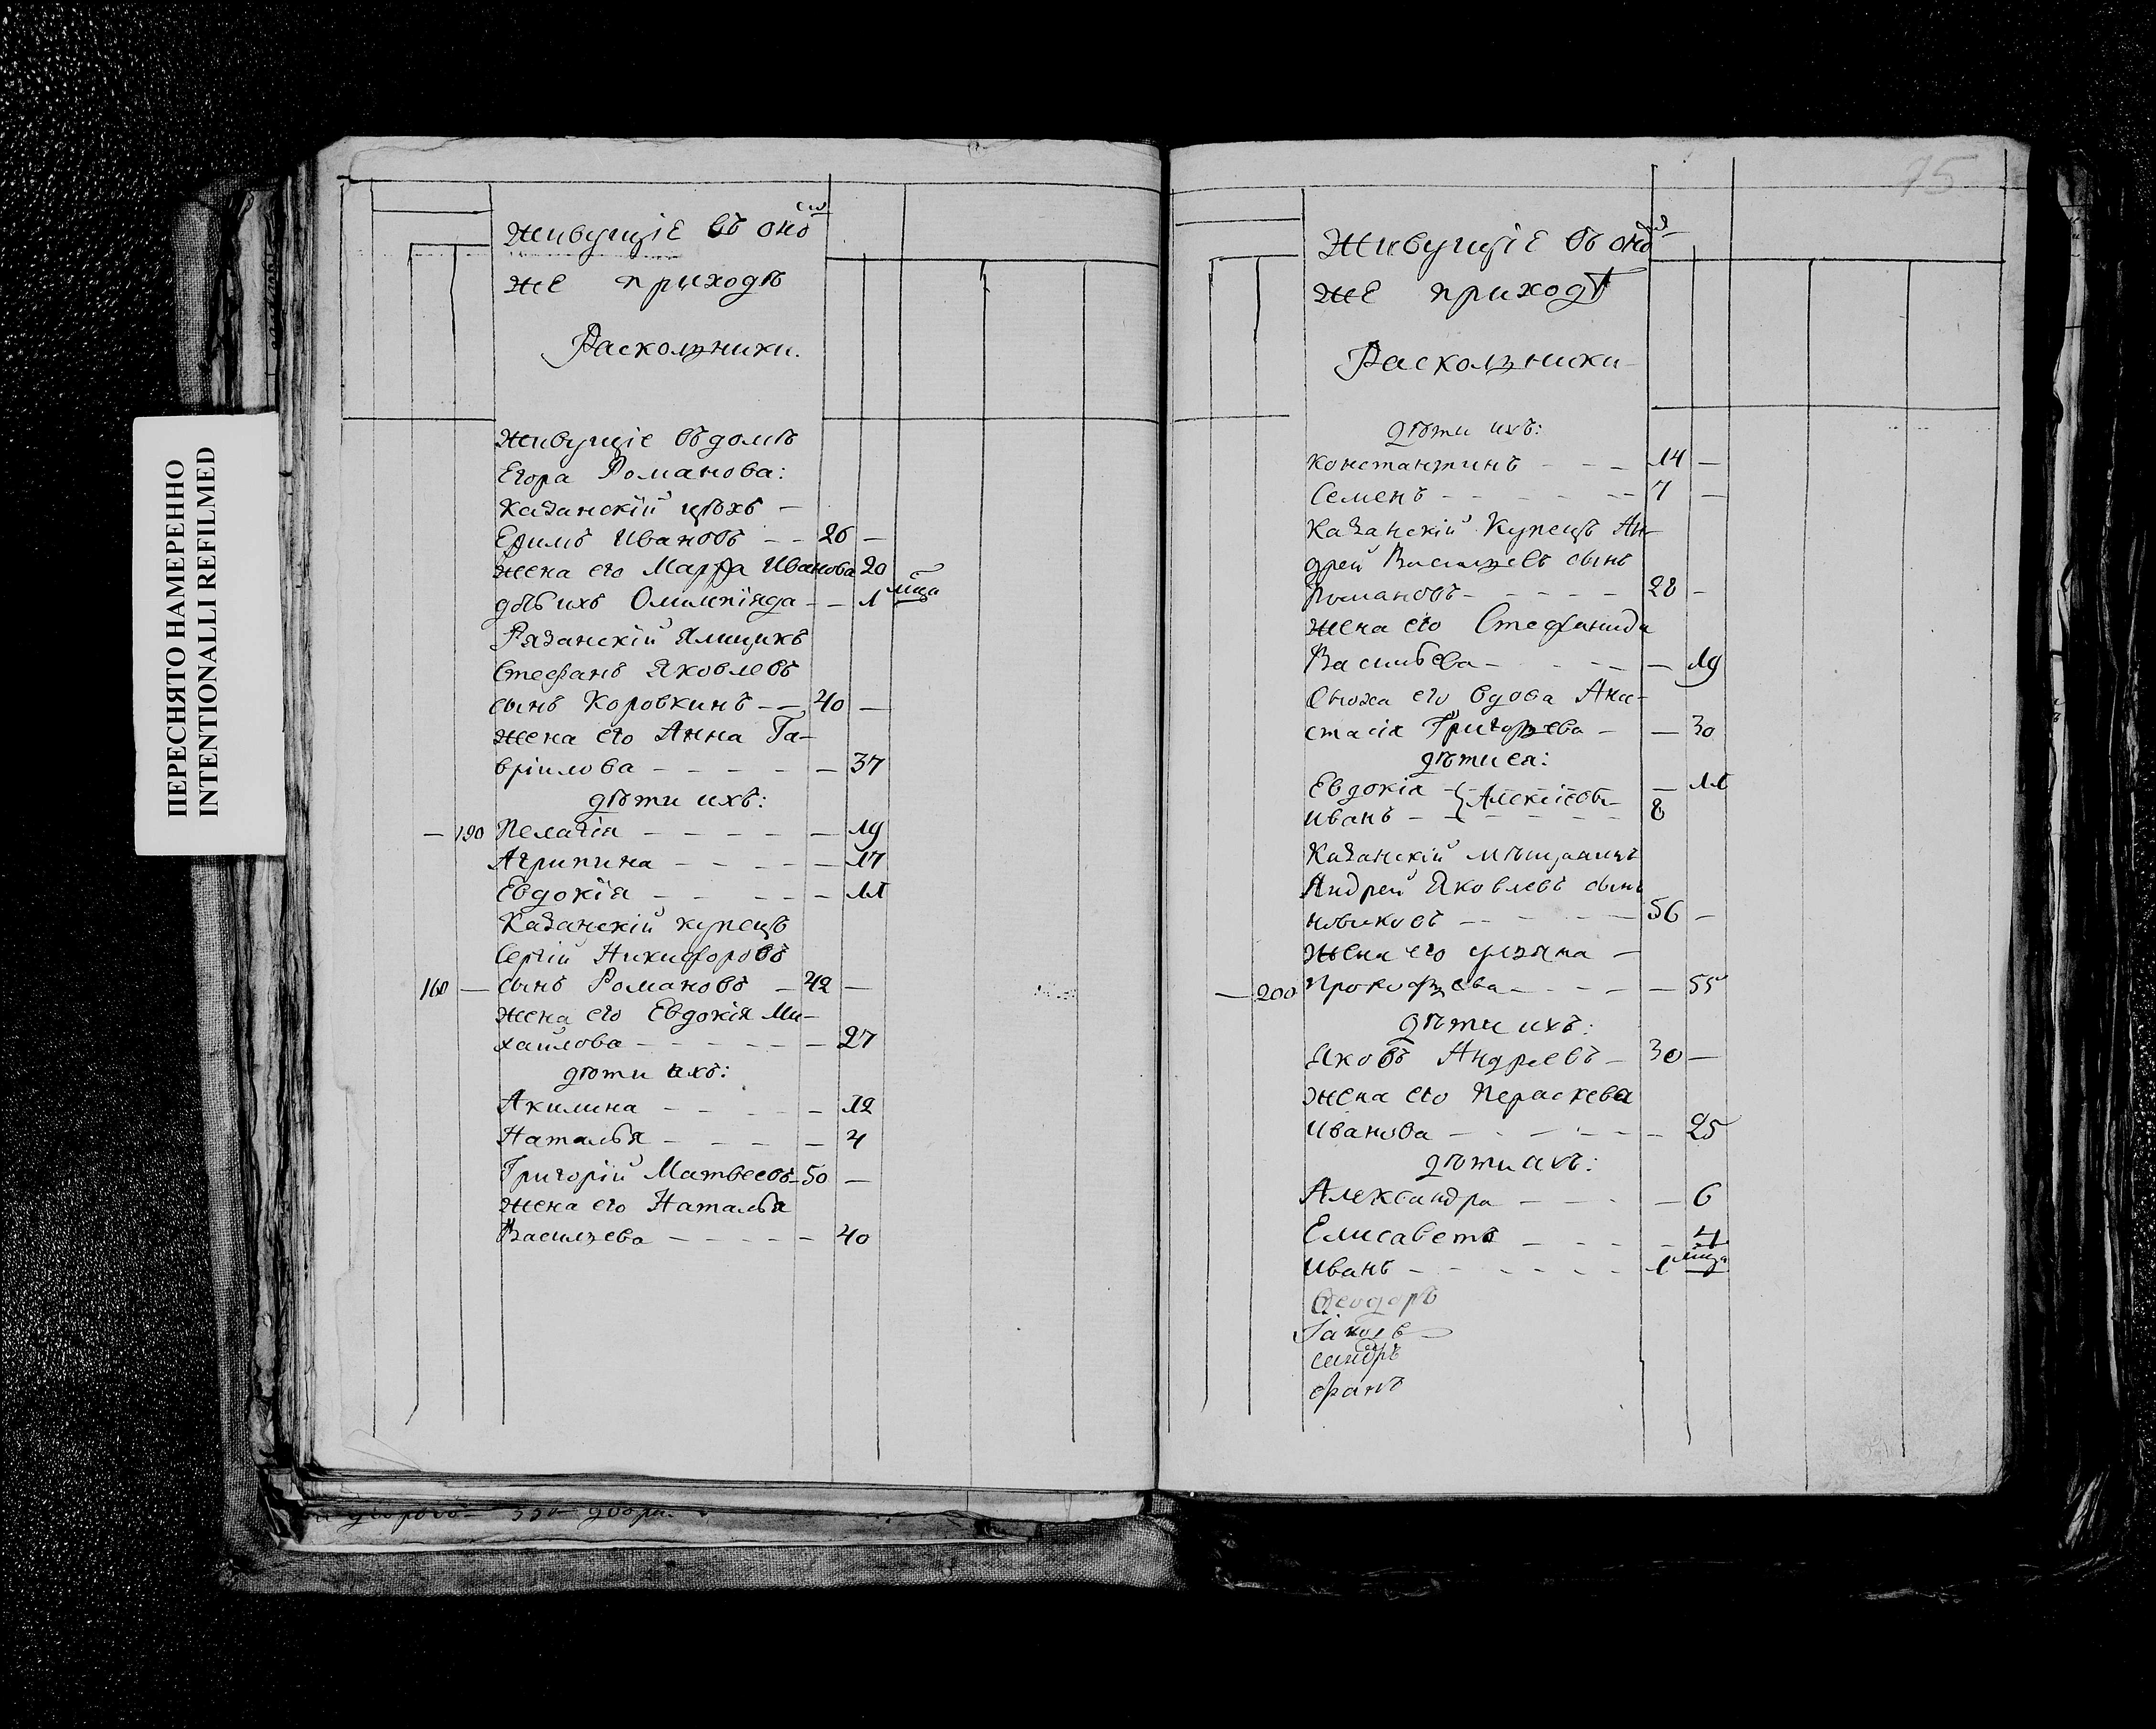 ПЕРЕСНЯТО НАМЕРЕННО
INTENTIONALLI REFILMED
Живущіе въ оно
же приходѣ
Расколники.
Живущіе въ домѣ
Егора Романова:
Казанскій цѣхъ —
Ефимъ Ивановъ — — 26 —
жена его Марфа Иванова 20
дѣ ихъ Олимпіяда — — 1 мца
Рязанскій Ямщикъ
Стефанъ Яковлевъ
сынъ Коровкинъ — — 40 —
жена его Анна Га-
врилова — — — — — — 37
дѣти ихъ:
— 190 Пелагія — — — — — — 19
Агрипина — — — — — 17
Евдокія — — — — — 11
Казанскій купецъ
Сергій Никифоровъ
160 — сынъ Романовъ — 42 —
жена его Евдокія Ми-
хаилова — — — — — — 27
дѣти ихъ:
Акилина — — — — — 12
Наталья — — — — — 4
Григорій Матвеевъ — 50 —
жена его Наталья
Васильева — — — — — 40
и дворово 330 двора.
75
Живущіе въ оно
же приходѣ
Расколники
дѣти ихъ:
Константинъ — — — 14 —
Семенъ — — — — — — 7 —
Казанскій Купецъ Ан-
дрей Васильевъ сынъ
Романовъ — — — — — 28 —
жена его Стефанида
Васильева — — — — — 19
Сноха его вдова Ана-
стасія Григорьева — — 30
дѣти ея:
Евдокія — Алексіевы — — 11
Иванъ — — — — — — 8
Казанскій мѣщанинъ
Андрей Яковлевъ сынъ
Новиковъ — — — — — 56 —
Жена его Ульяна —
— 200 Прокофьева — — — — — 55
дѣти ихъ:
Яковъ Андреевъ — 30 —
жена его Параскева
Иванова — — — — — — 25
дѣти ихъ:
Александра — — — — 6
Елисаветъ — — — — 4
Иванъ — — — — — — 1 мца
Ѳеодоръ
Іаковъ
сандръ
фанъ